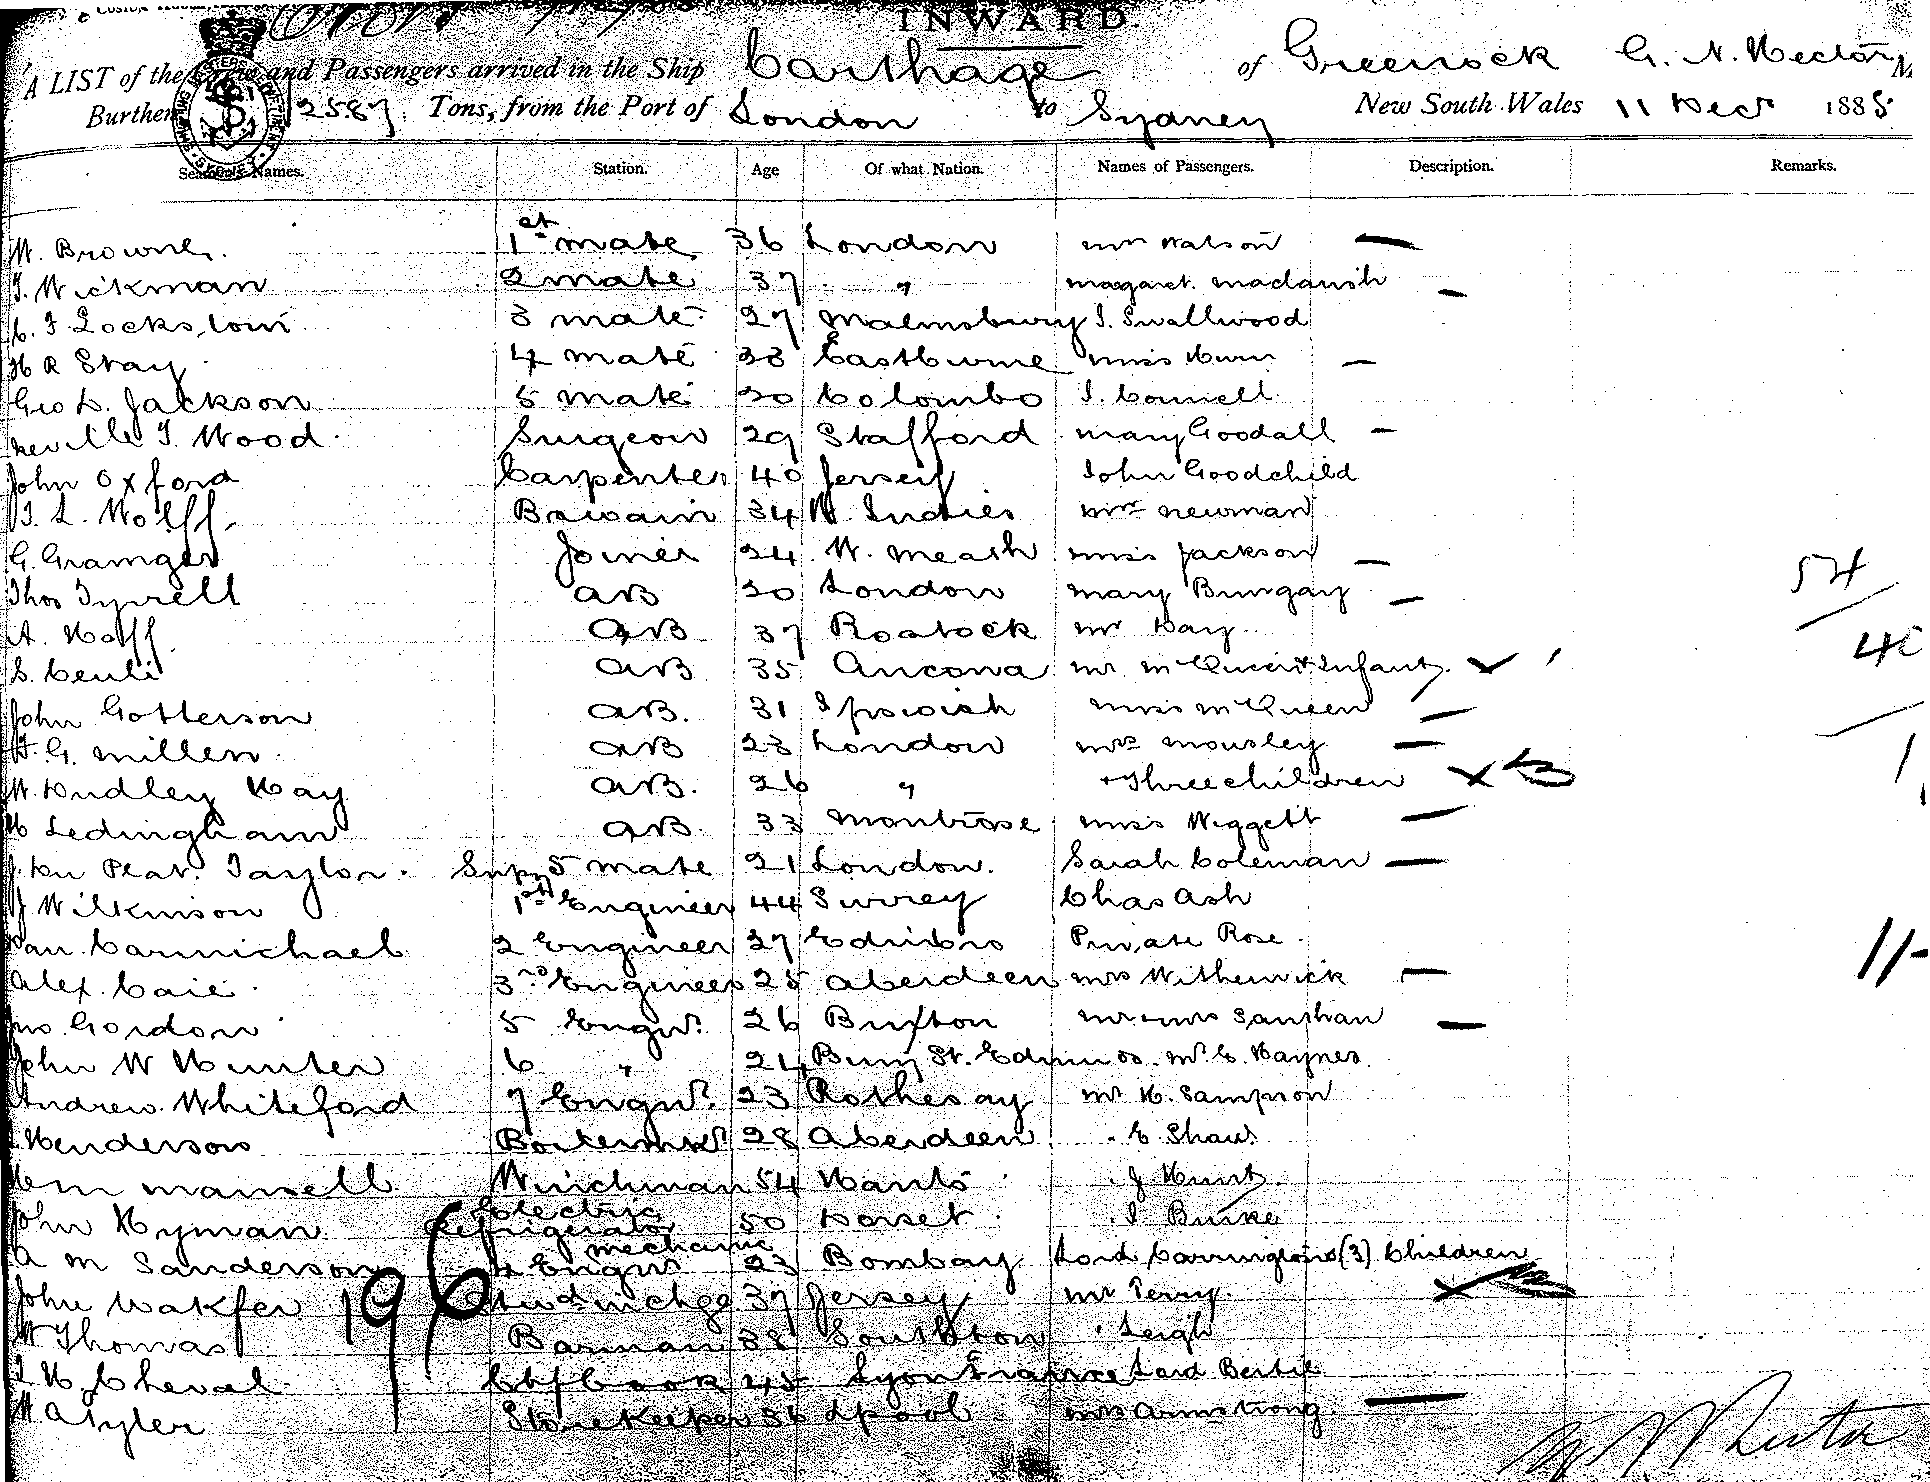 INWARD.
A LIST of the Crew and Passengers arrived in the Ship Carthage of Greenock G. N. Hector
Burthen 2587 Tons, from the Port of London to Sydney New South Wales 11 Decr 1885
Seamen's Names. Station. Age Of what Nation. Names of Passengers. Description. Remarks.
W. Browne. 1st mate 36 London Mrs Watson —
T. Wickman 2 mate 37 " Margaret —
3 mate 27 Malmsbury Swallwood
H R Stay 4 mate 33 Eastburne Miss —
Geo D. Jackson 5 mate 20 Colombo
Neville T Wood Surgeon 29 Stafford Mary Goodall —
John Oxford Carpenter 40 Jersey John Goodchild
Wolff 34 W. Indies Mrs Newman
G. Grainger Joiner 24 W. Meath Miss Jackson —
Thos Tyrrell AB 20 London Mary Bungay — 54
AB 37 Rostock Mr Day
AB 35 Ancona Mr McQueen + Infant
John Gotterson AB. 31 Ipswich Miss McQueen —
G. Millen AB 23 London Mrs Mousley —
W. Dudley Hay AB. 26 " + Three children
Ledingham AB 33 Montrose Miss Wiggett —
Taylor. 5 mate 21 London. Sarah Coleman —
Wilkinson 1st Engineer 44 Surrey Chas Ash
Carmichael 2 Engineer 27 Edinbro Private Rose
Alex. Caie 3rd Engineer 25 Aberdeen Mrs Witherwick —
Jno. Gordon 5 Engnr. 26 Buxton Mr + Mrs —
John W Hunter 6 " 24 Bury St. Edmunds. Mr. E. Haynes
Andrew Whiteford 7 Engnr. 23 Rothesay Mr H. Sampson
Henderson 28 Aberdeen " E Shaw
Mansell Winchman 54 Hants " J Hunt
John Hyman Electric Refrigerator mechanic 50 Dorset " Burke
A M Sanderson 4 Engnr 23 Bombay Lord Carringtons (3) Children
John Wakfer 196 37 Jersey Mr Perry
W Thomas Barman 38 Southton " Leigh
Cheval Chf Cook 45 Lyon France Lord Bertil
W A Tyler Storekeeper 36 Lpool Mrs Armstrong. —